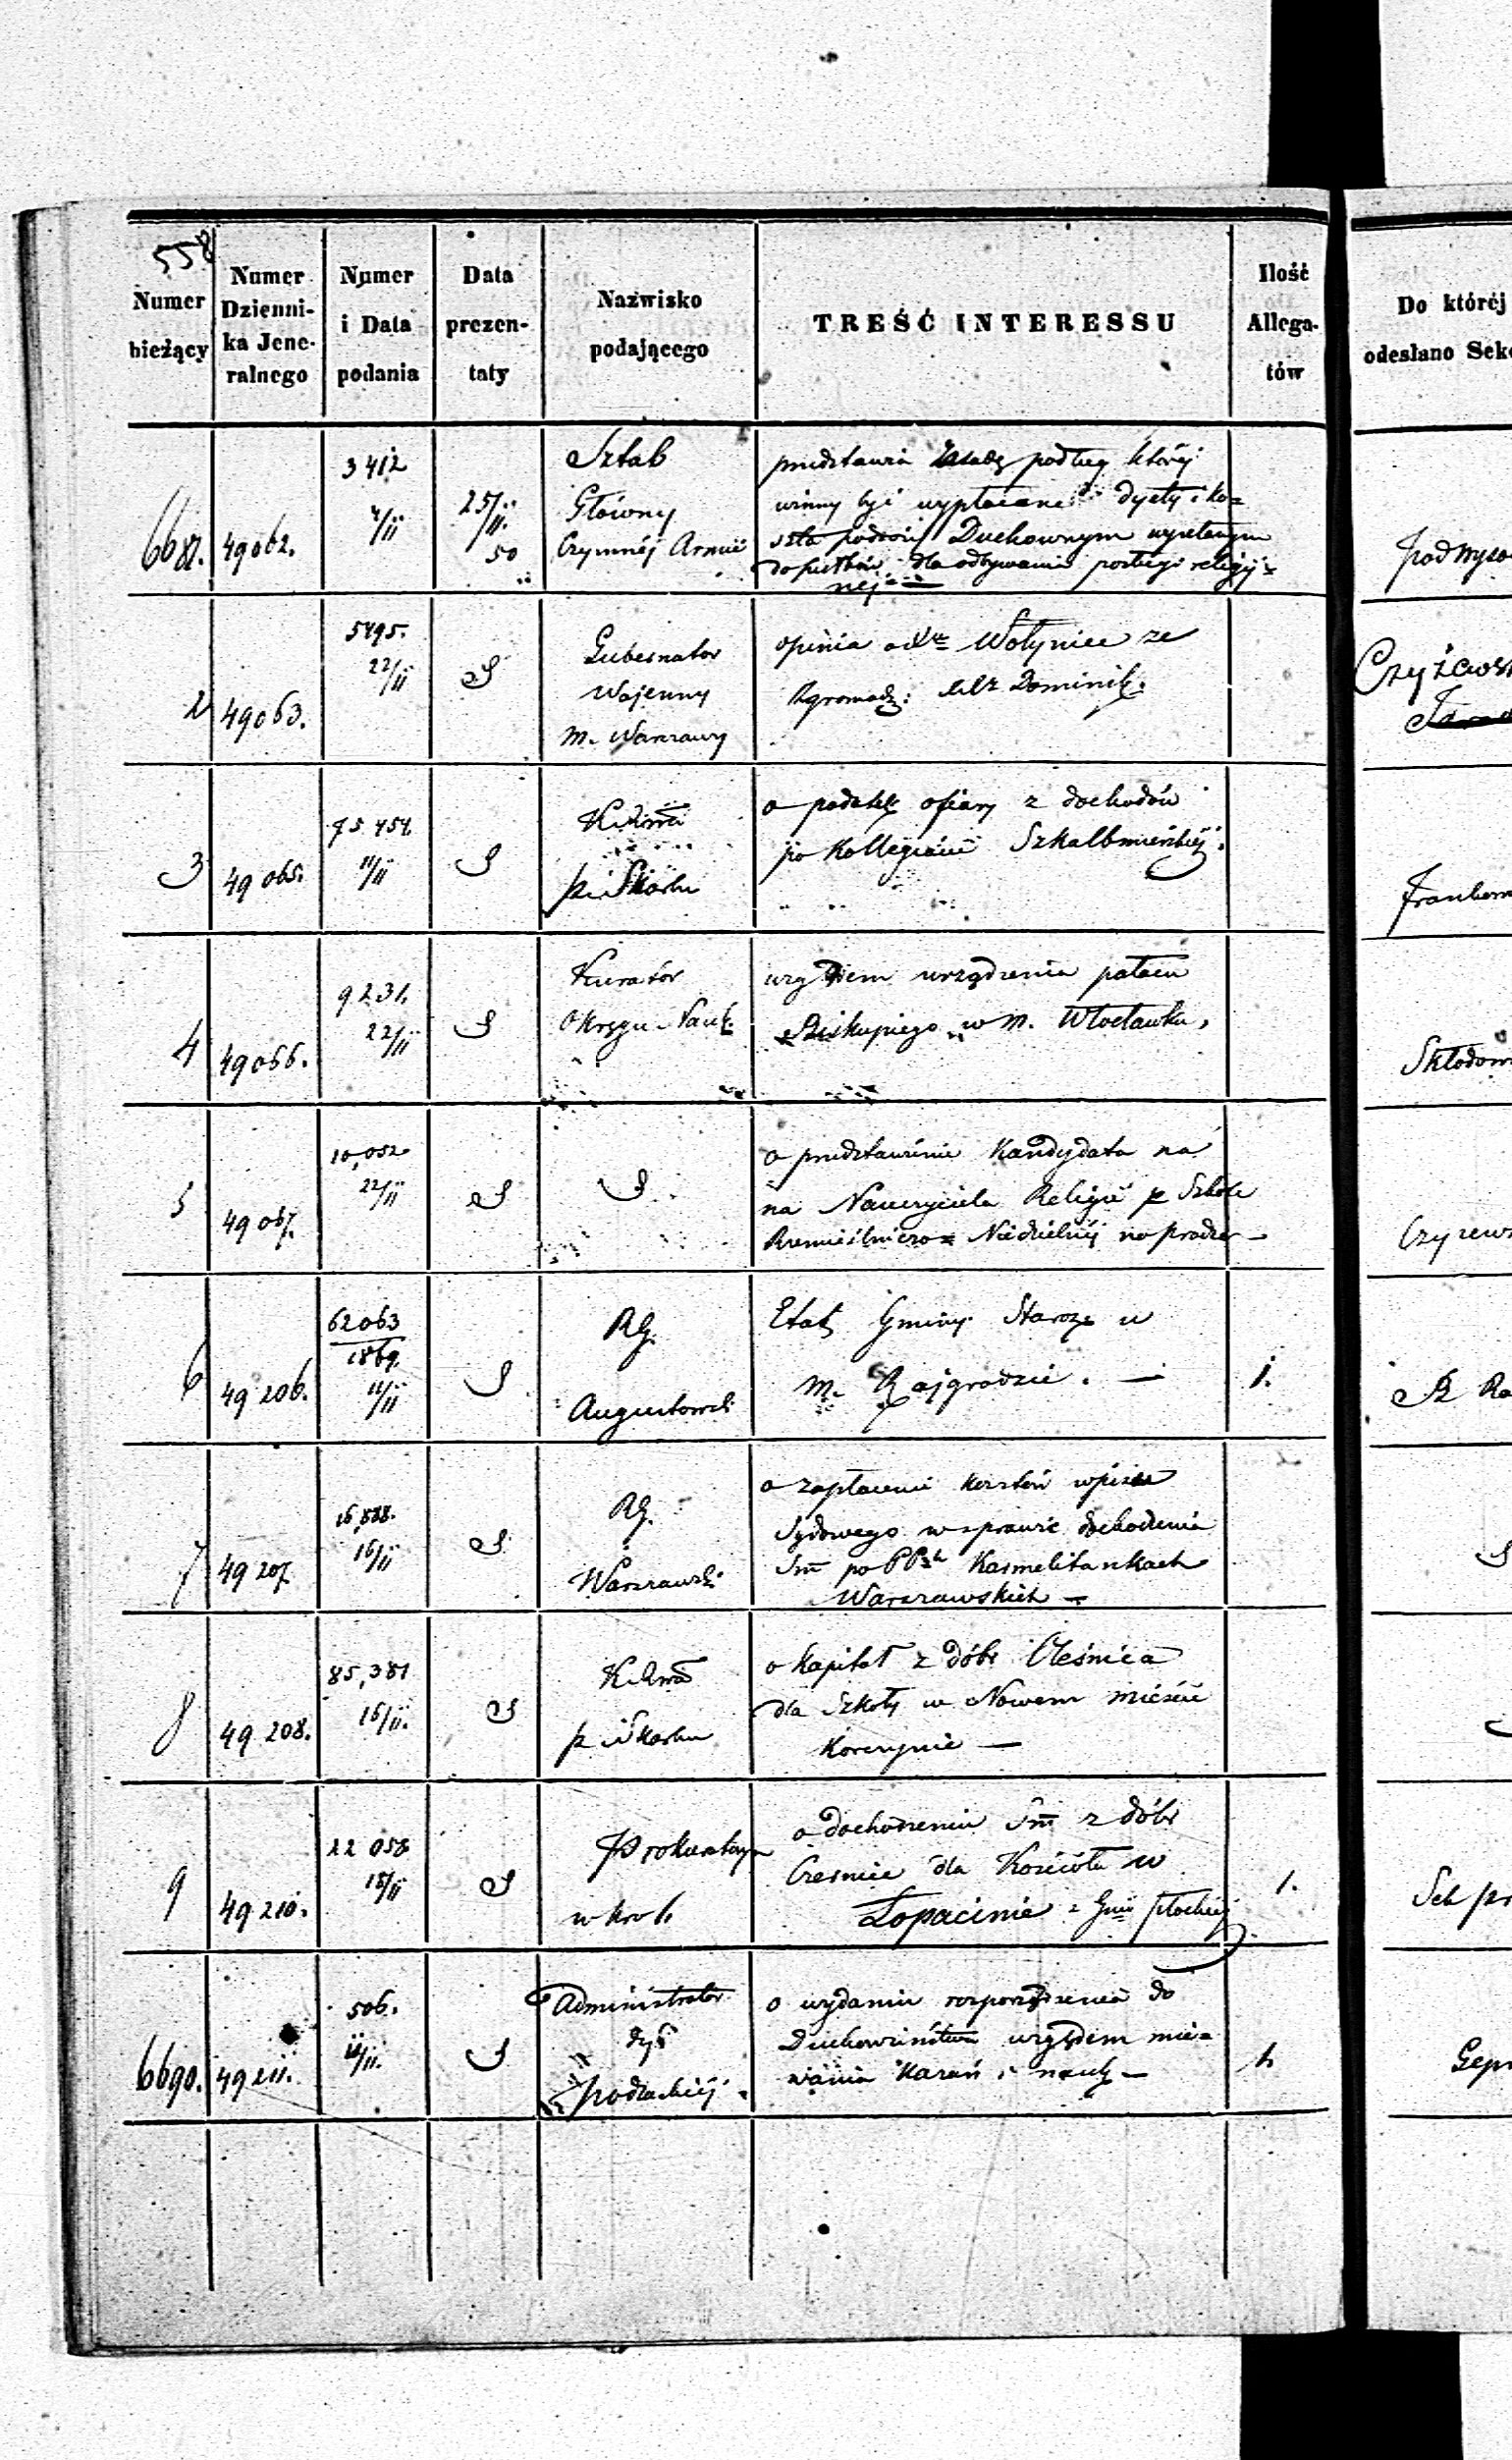 558
Numer bieżący
Numer Dzienni-ka Jene-ralnego
Numer i Data podania
Data prezen-taty
Nazwisko podającego
TREŚĆ INTERESSU
Ilość Allega-tów
Do któréj
odesłano Sek
6681. 49062. 3412 4/11 25/11 50
Sztab
Główny
Czynnéj Armii
przedstawia zasadę podług któréj
winny być wypłacane dyety i ko=
szta podróży Duchownym wysełanym
do pułków dla odbywania posługi religij=
néj
2 49063. 5495. 22/11
Gubernator
Wojenny
m. Warszawy
opinia o Wołyniec ze
Zgromadz: Dominik.
Czyżews
3 49065. 75454 11/11
p. i Skarbu
o podatek ofiary z dochodów
po Kollegiacie Szkalbmierskiéj.
4 49066. 9231. 22/11
Kurator
Okręgu Nauk.
względem urządzenia pałacu
Biskupiego w m. Włocławku,
Skłodow
5 49067. 10,052 22/11
o przedstawienie Kandydata na
na Nauczyciela Religii p Szkole
Rzemieślniczo= Niedzielnéj na pradze
Czyzews
6 49206. 62063 1869 11/11
RG.
Augustowski
Etat Gminy Staroz. w
m. Rajgrodzie. —
1.
7 49207 16,888. 16/11
RG.
Warszawski
o zapłacenie kosztów wpisu
Sądowego w sprawie dochodzenia
Sm̄ po PP Karmelitankach
Warszawskich —
8 49208. 85,381 16/11.
p i Skarbu
o kapitał z dóbr Oleśnica
dla Szkoły w Nowem mieście
Korczynie —
9 49210. 22 058 18/11
Prokuratorya
w Król.
o dochodzeniu Sm̄ z dóbr
dla Kościoła w
Łopacinie z Gnii Płockiéj
1.
6690. 49211. 506.
Administrator
dyi
Podlaskiéj
o wydaniu rozporządzenia do
Duchowieństwa względem mie=
wania kazań i nauk —
1.